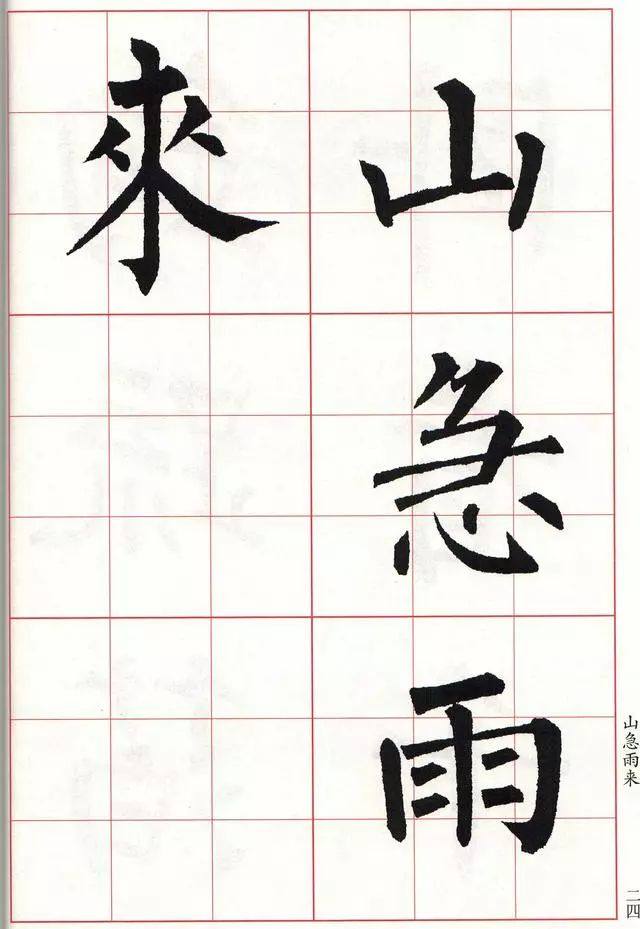 山急雨
來
山急雨来
二四